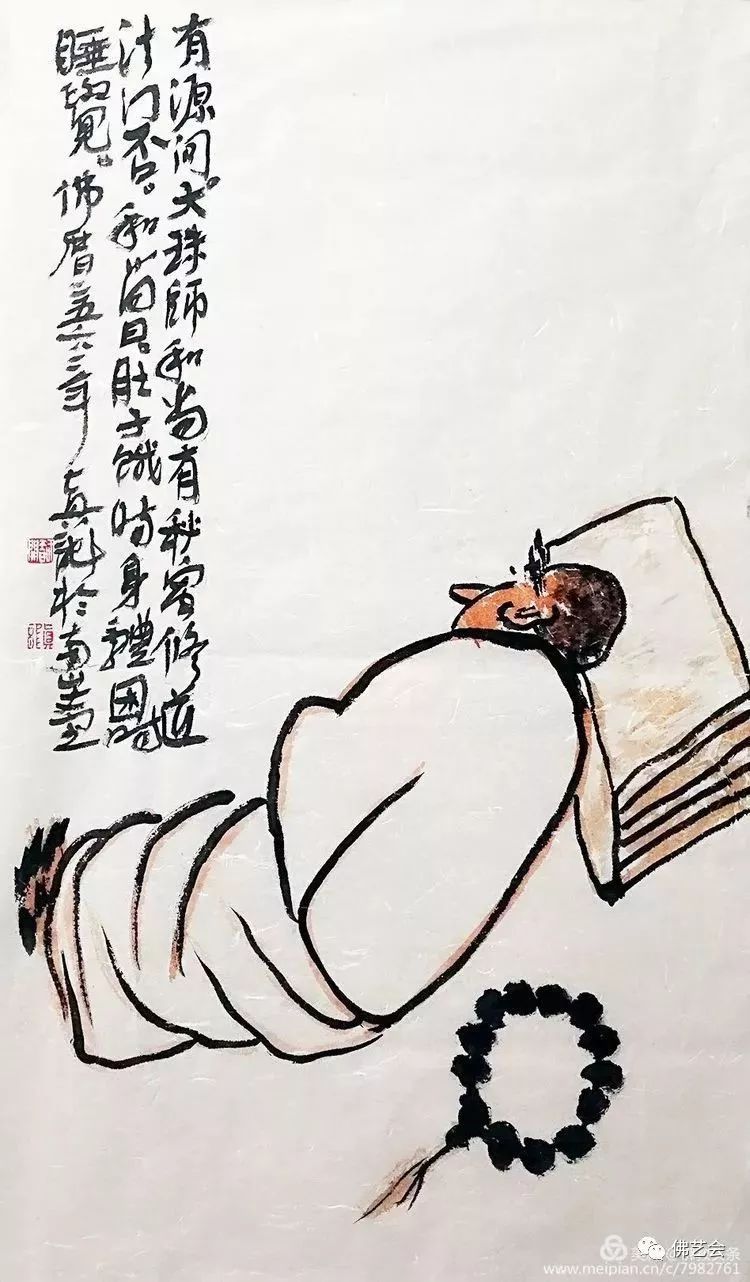 有源问。大珠師和尚有秘密修道
法门否。和尚曰肚子饿时身體困时
睡覺。佛曆二五六三年 真 於南山
佛艺会
www.meipian.cn/c/7982761